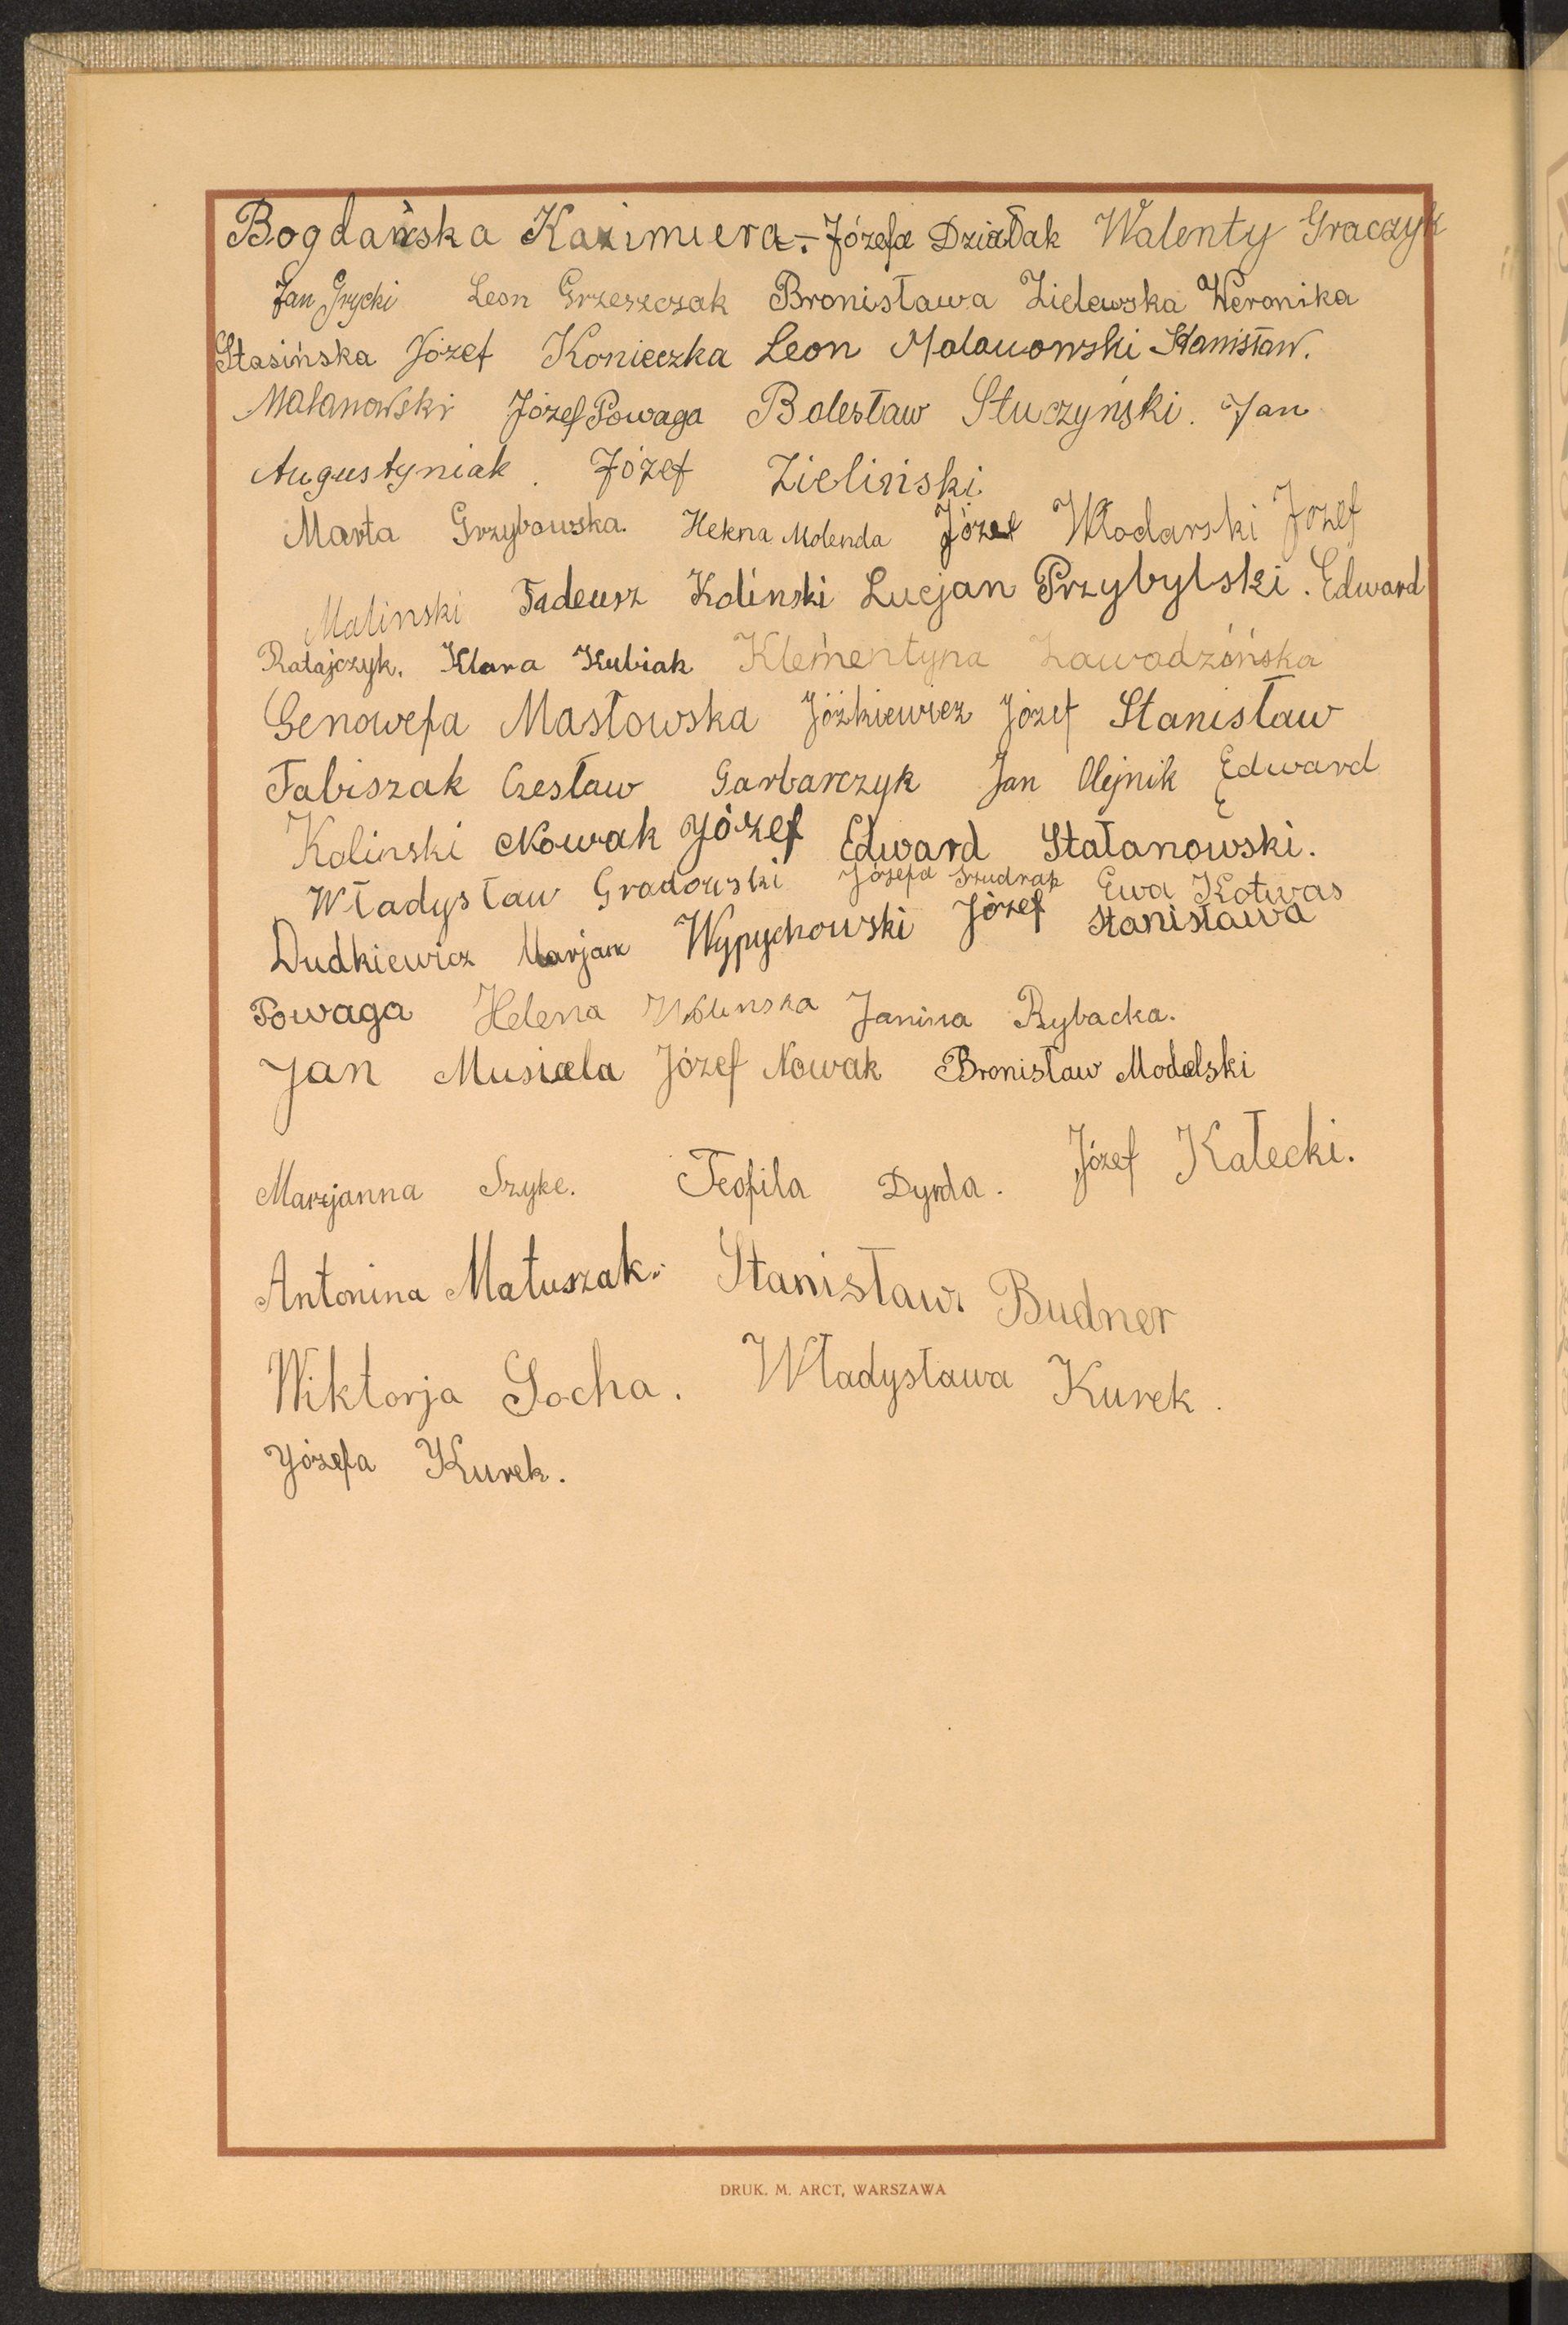 Bogdańska Kazimiera.- Józefa Działak Walenty Graczyk
Jan Grycki Leon Grzeszczak Bronisława Zielewska Weronika
Stasińska Józef Konieczka Leon Malanowski Stanisław.
Malanowski Józef Powaga Bolesław Stuczyński. Jan
Augustyniak. Józef Zieliński
Marta Grzybowska. Helena Molenda Józef Włodarski Józef
Malinski Tadeusz Kolinski Lucjan Przybylski. Edward
Ratajczyk. Klara Kubiak Klementyna
Genowefa Masłowska Jóżkiewicz Józef Stanisław
Fabiszak Czesław Garbarczyk Jan Olejnik Edward
Kolinski Nowak Józef Edward Statanowski.
Władysław Gradowski Józefa Szudrak Ewa Kotwas
Dudkiewicz Marjan Wypychowski Józef Stanisława
Powaga Helena Janina Rybacka.
Jan Musiala Józef Nowak Bronisław Modelski
Józef Kałecki.
Marjanna Szyke. Teofila Dyrda.
Antonina Matuszak. Stanisław. Budner
Wiktorja Socha. Władysława Kurek.
Józefa Kurek.
DRUK. M. ARCT, WARSZAWA